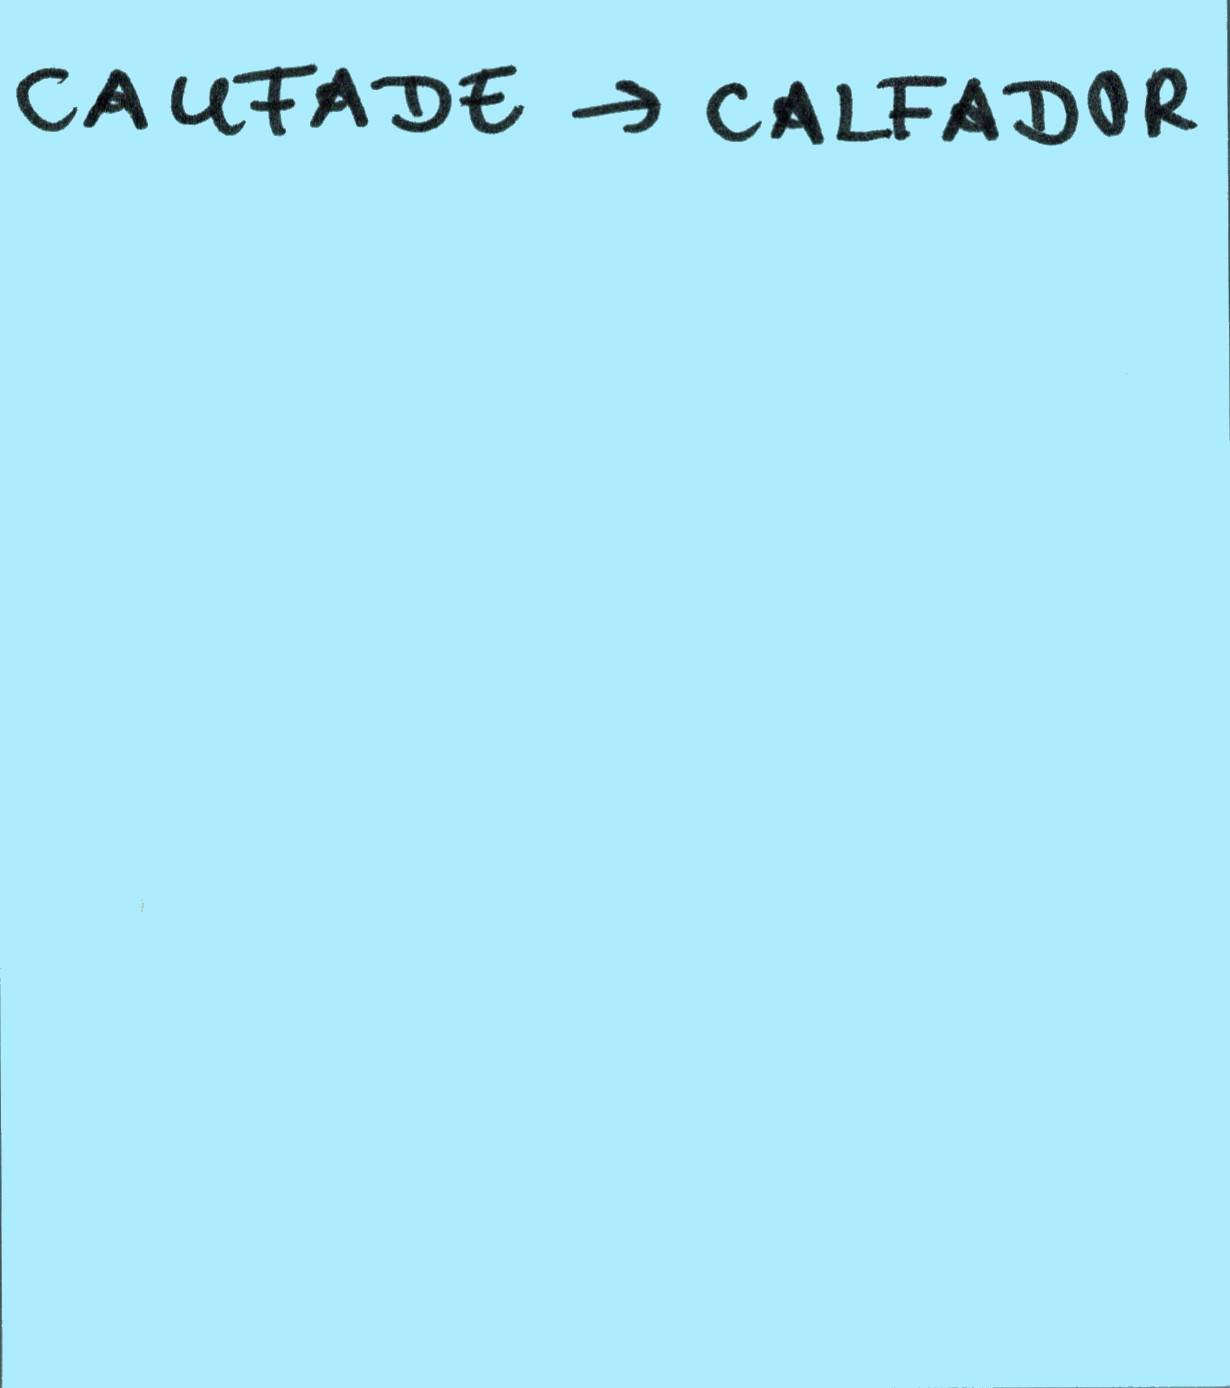 CAUFADE → CALFADOR